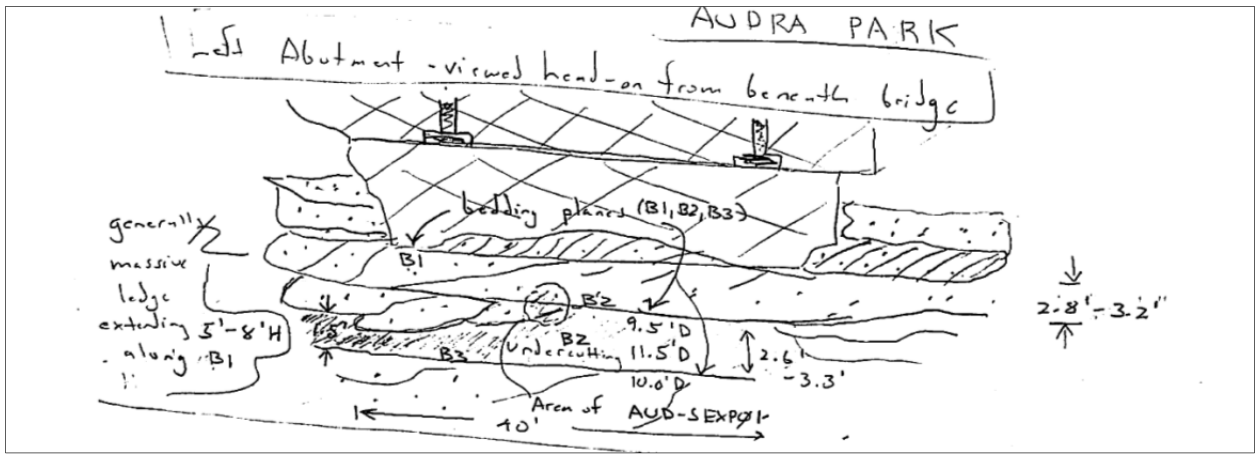 AUDRA PARK
Left Abutment - viewed head-on from beneath bridge
bedding planes (B1, B2, B3)
generally
massive
ledge
extending 5'-8'H
along B1
B1
B2
2.8' - 3.2'
1.5'
9.5'D
B2
undercutting 11.5'D
B3
2.6'
- 3.3'
10.0'D
Area of AUD-SEXP01
40'